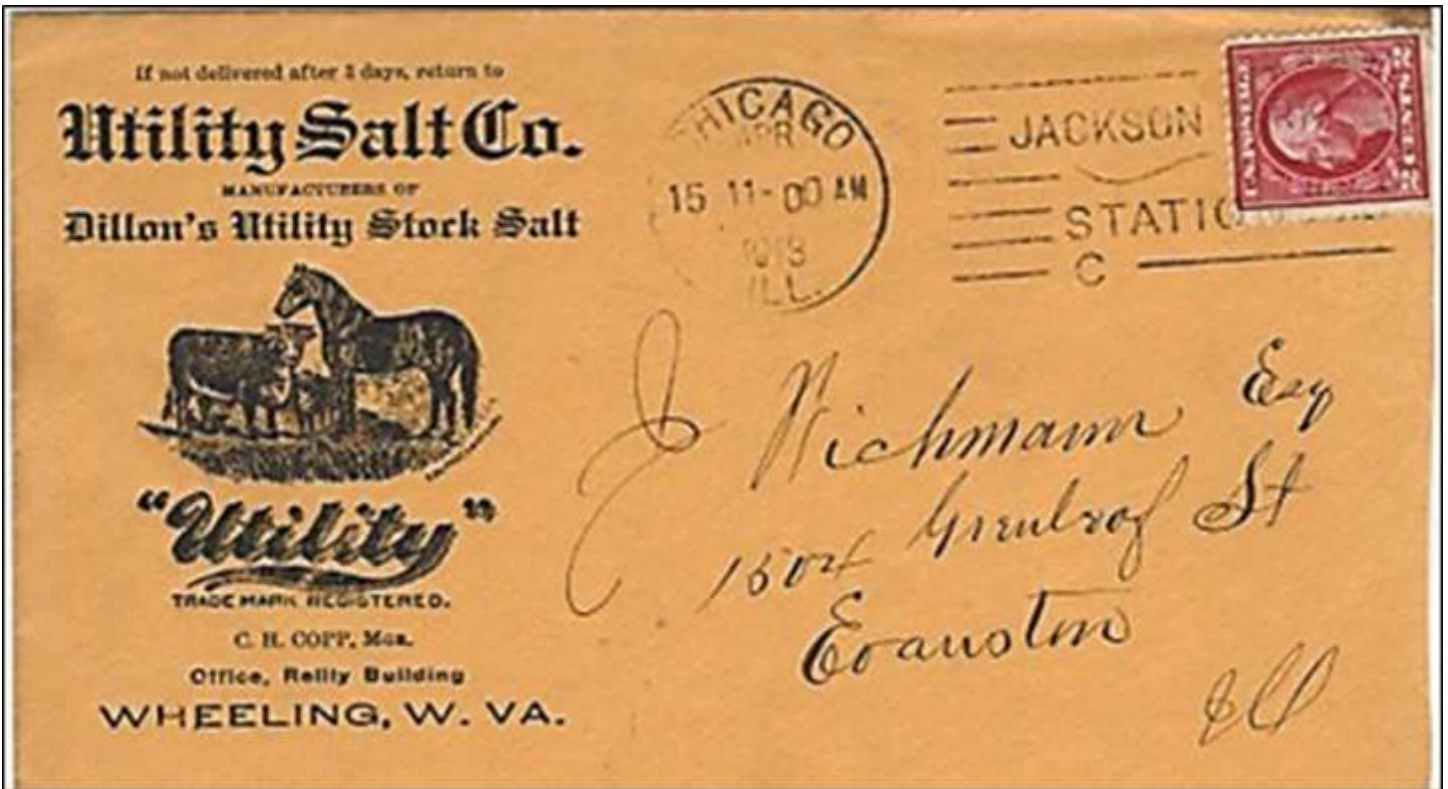 If not delivered after 3 days, return to
Utility Salt Co.
MANUFACTURERS OF
Dillon's Utility Stock Salt
"Utility"
TRADE MARK REGISTERED.
C. H. COPP, MGR.
Office, Reilly Building
WHEELING, W. VA.
CHICAGO
APR
15 11-00 AM
1913
ILL.
JACKSON
STATIO
C
U.S. POSTAGE
2 CENTS 2
J Wichmann Esq
1504 Greenleaf St
Evanston
Ill